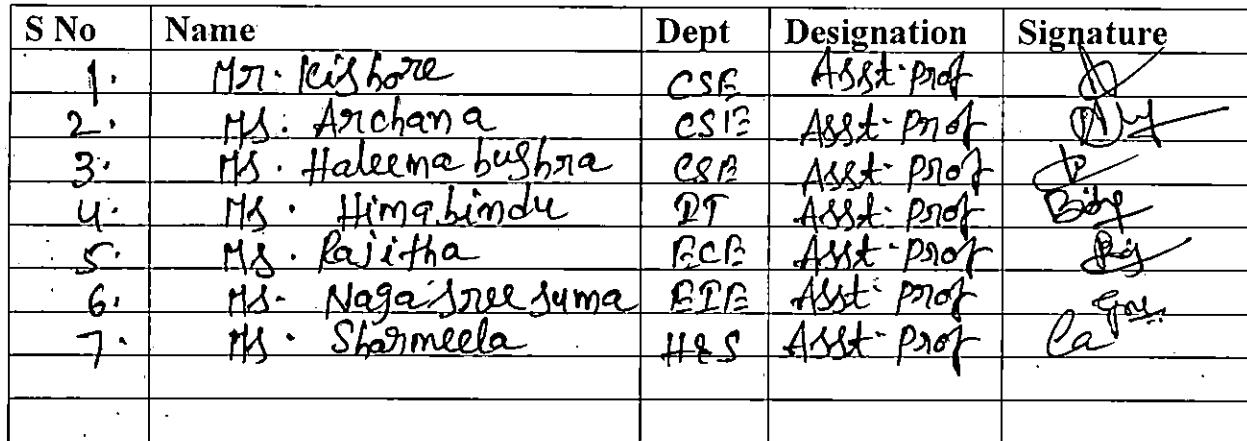 S No Name Dept Designation Signature
1. Mr. Kishore CSE Asst. Prof
2. Ms. Archana CSE Asst. Prof
3. Ms. Haleema bushra CSE Asst. Prof
4. Ms. Himabindu IT Asst. Prof
5. Ms. Rajitha ECE Asst. Prof
6. Ms. Naga Sree Suma EIE Asst. Prof
7. Ms. Sharmeela H&S Asst. Prof